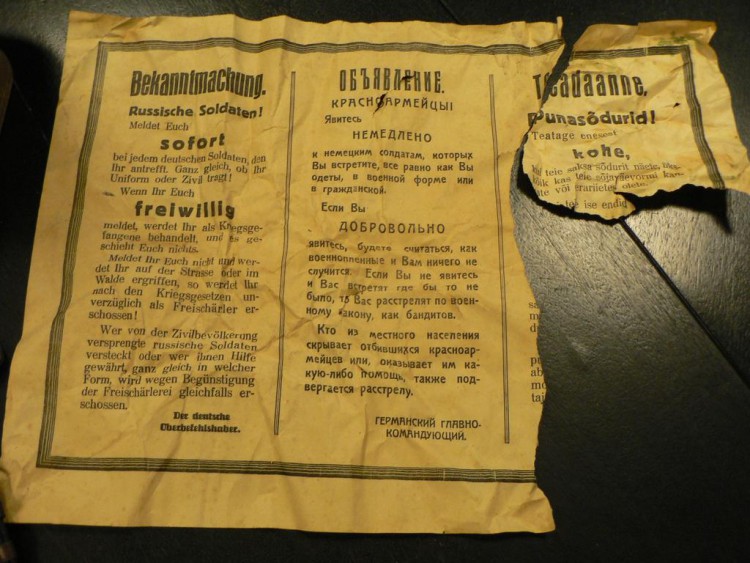 Bekanntmachung.
Russische Soldaten!
Meldet Euch
sofort
bei jedem deutschen Soldaten, den
Ihr antrefft. Ganz gleich, ob Ihr
Uniform oder Zivil tragt!
Wenn Ihr Euch
freiwillig
meldet, werdet Ihr als Kriegsge-
fangene behandelt, und es ge-
schieht Euch nichts.
Meldet Ihr Euch nicht und wer-
det Ihr auf der Strasse oder im
Walde ergriffen, so werdet Ihr
nach den Kriegsgesetzen un-
verzüglich als Freischärler er-
schossen!
Wer von der Zivilbevölkerung
versprengte russische Soldaten
versteckt oder wer ihnen Hilfe
gewährt, ganz gleich in welcher
Form, wird wegen Begünstigung
der Freischärlerei gleichfalls er-
schossen.
Der deutsche
Oberbefehlshaber.
ОБЪЯВЛЕНИЕ.
КРАСНОАРМЕЙЦЫ!
Явитесь
НЕМЕДЛЕНО
к немецким солдатам, которых
Вы встретите, все равно как Вы
одеты, в военной форме или
в гражданской.
Если Вы
ДОБРОВОЛЬНО
явитесь, будете считаться, как
военнопленные и Вам ничего не
случится. Если Вы не явитесь
и Вас встретят где бы то не
было, то Вас расстрелят по воен-
ному закону, как бандитов.
Кто из местного населения
скрывает отбившихся красноар-
мейцев или, оказывает им ка-
кую-либо помощь, также под-
вергается расстрелу.
ГЕРМАНСКИЙ ГЛАВНО-
КОМАНДУЮЩИЙ.
Teadaanne.
Punasõdurid!
Teatage enesest
kohe,
teie saksa sõdurit näete,
kas teie sõjaväevormi
või erariietes olete.
ise